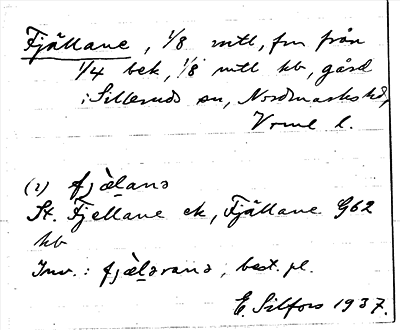 Fjällane, 1/8 mtl, fm från
1/4 bek, 1/8 mtl kb, gård
i Silleruds sn, Nordmarks hd,
Vrml l.
(2) fjäḷanə
St. Fjellane ek, Fjällane G62
kb
Inv.: fjäḷərana, best. pl.
E. Silfors 1937.